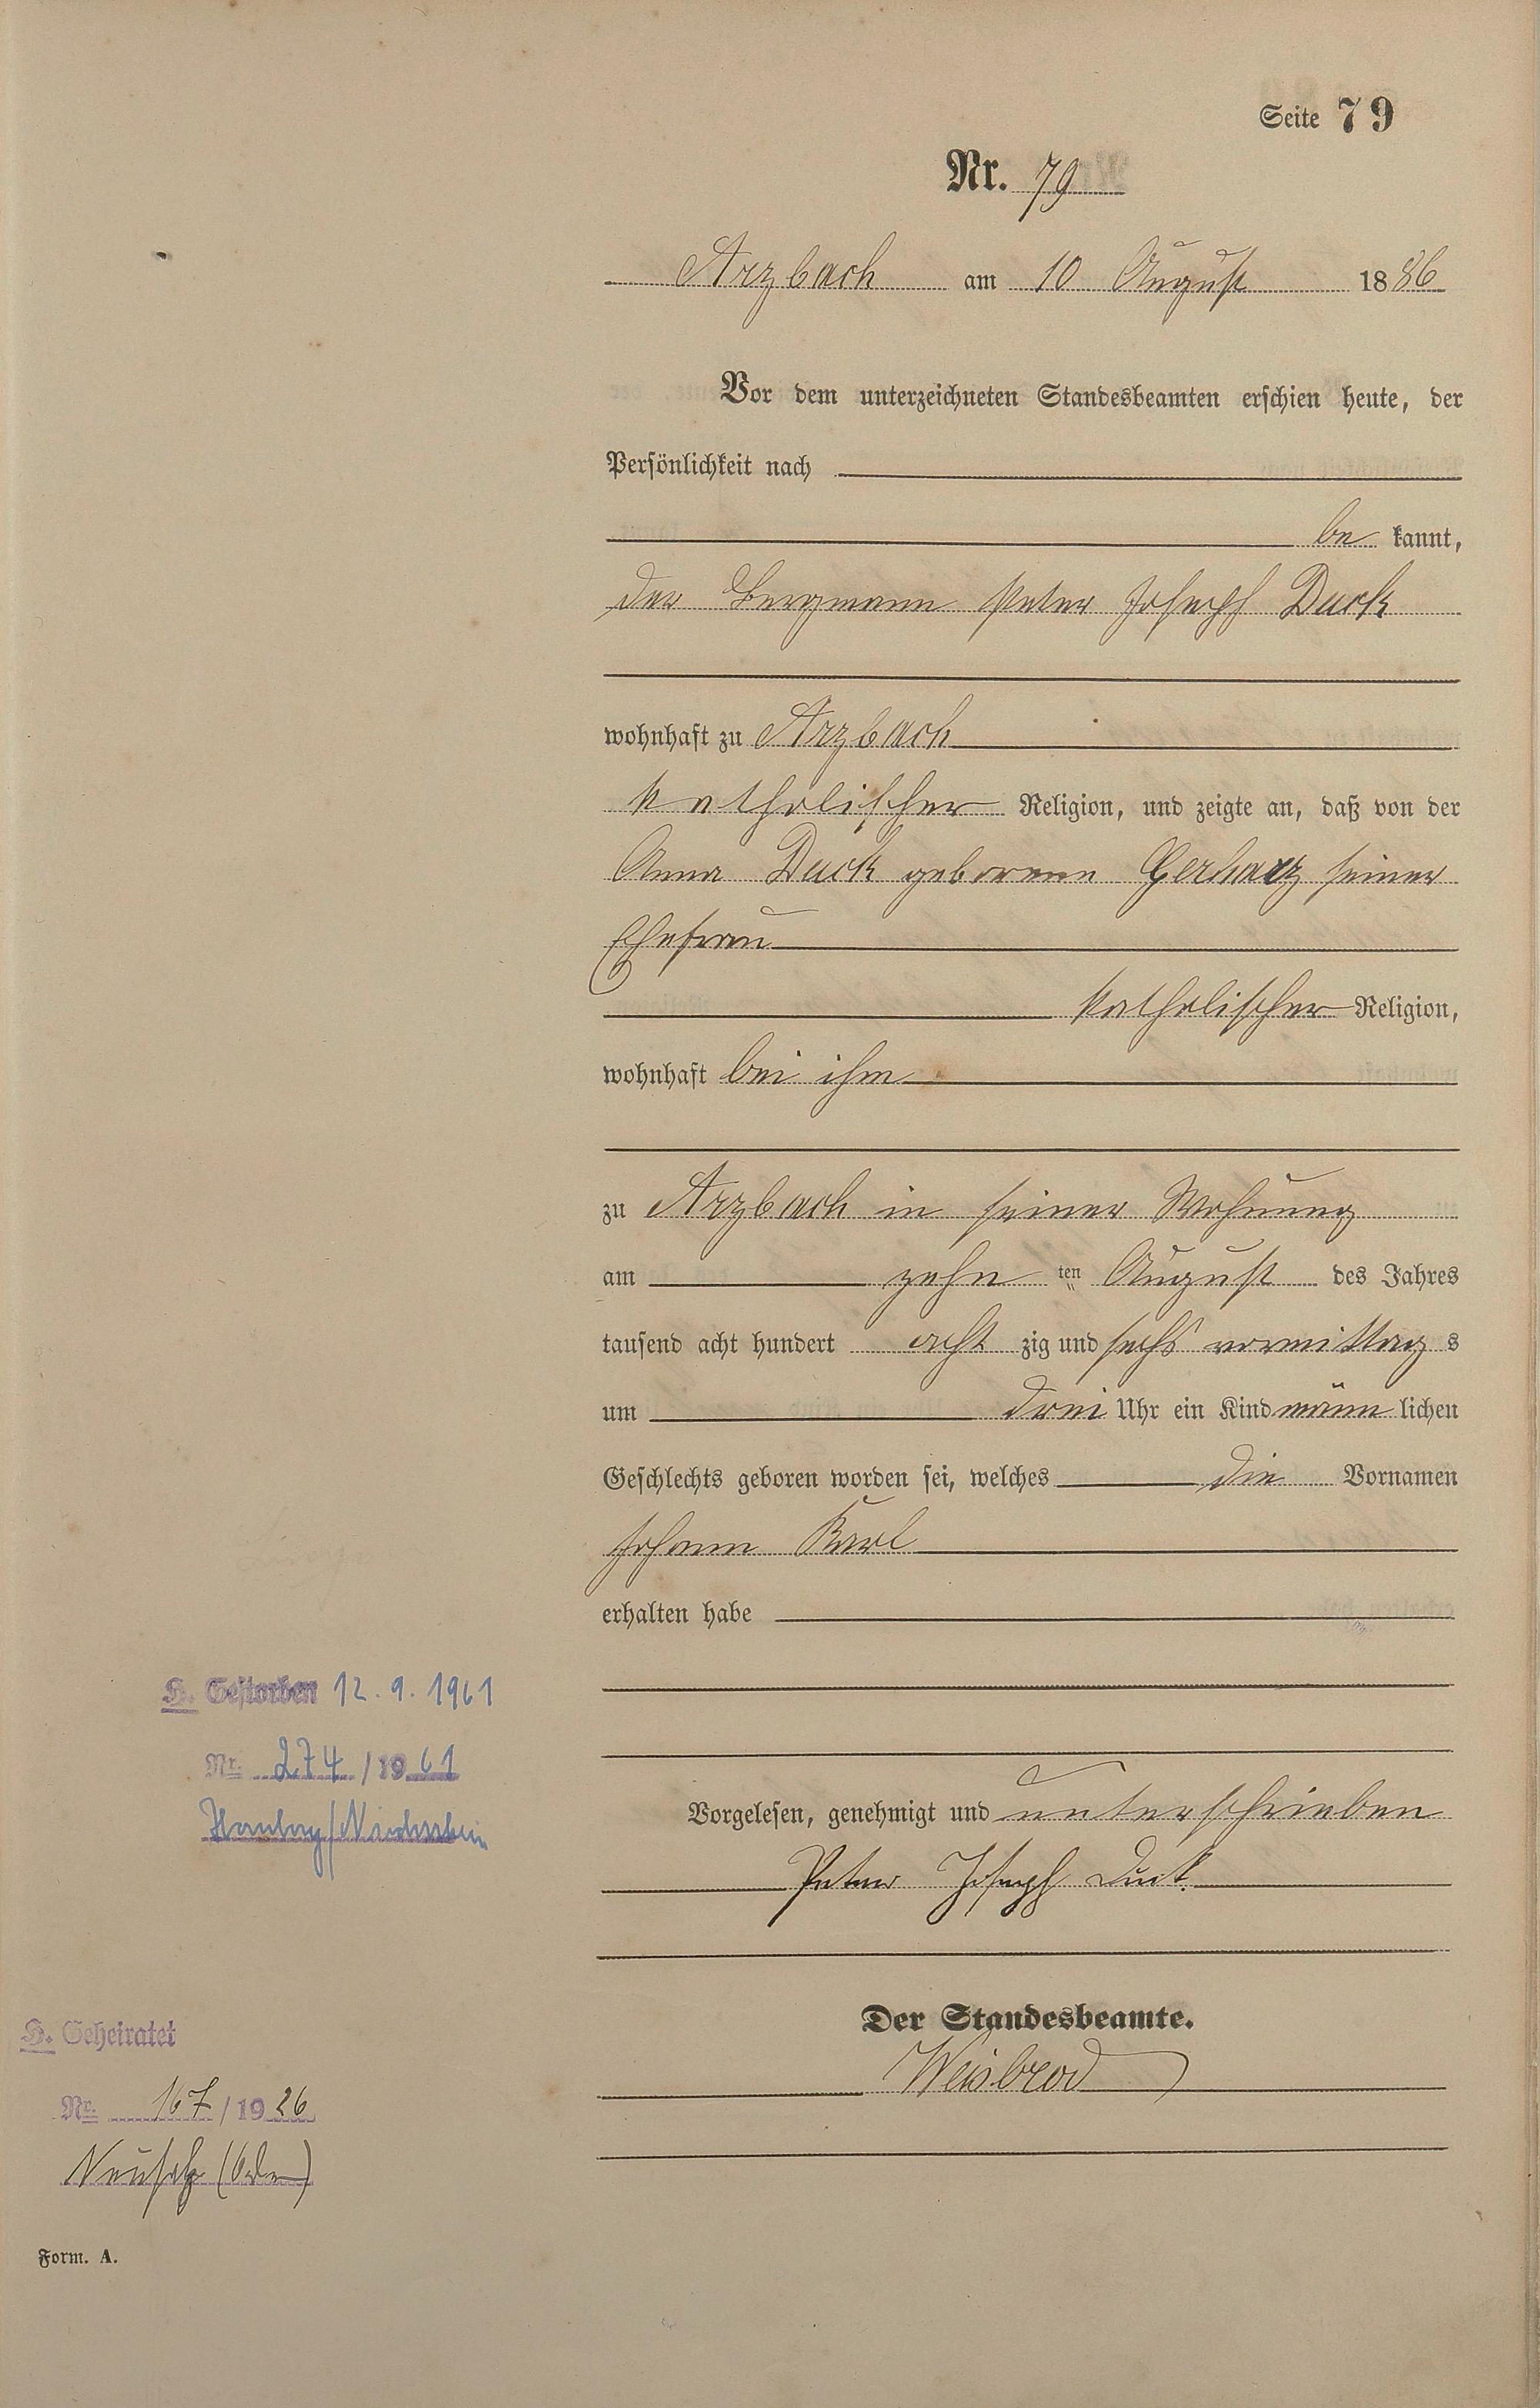 Seite 79
Nr. 79
Arzbach am 10 August 1886
Vor dem unterzeichneten Standesbeamten erschien heute, der
Persönlichkeit nach
be kannt,
der Bergmann Peter Joseph Duck
wohnhaft zu Arzbach
katholischer Religion, und zeigte an, daß von der
Anna Duck geborene Gerharz seiner
Ehefrau
katholischer Religion,
wohnhaft bei ihm
zu Arzbach in seiner Wohnung
am zehn ten August des Jahres
tausend acht hundert acht zig und sechs vormittag s
um drei Uhr ein Kind männ lichen
Geschlechts geboren worden sei, welches die Vornamen
Johann Karl
erhalten habe
H. Gestorben 12.9.1961
Nr. 274 / 1961
Vorgelesen, genehmigt und unterschrieben
Peter Joseph Duck.
Der Standesbeamte.
Weisbrod
H. Geheiratet
Nr. 167 / 1926
Form. A.